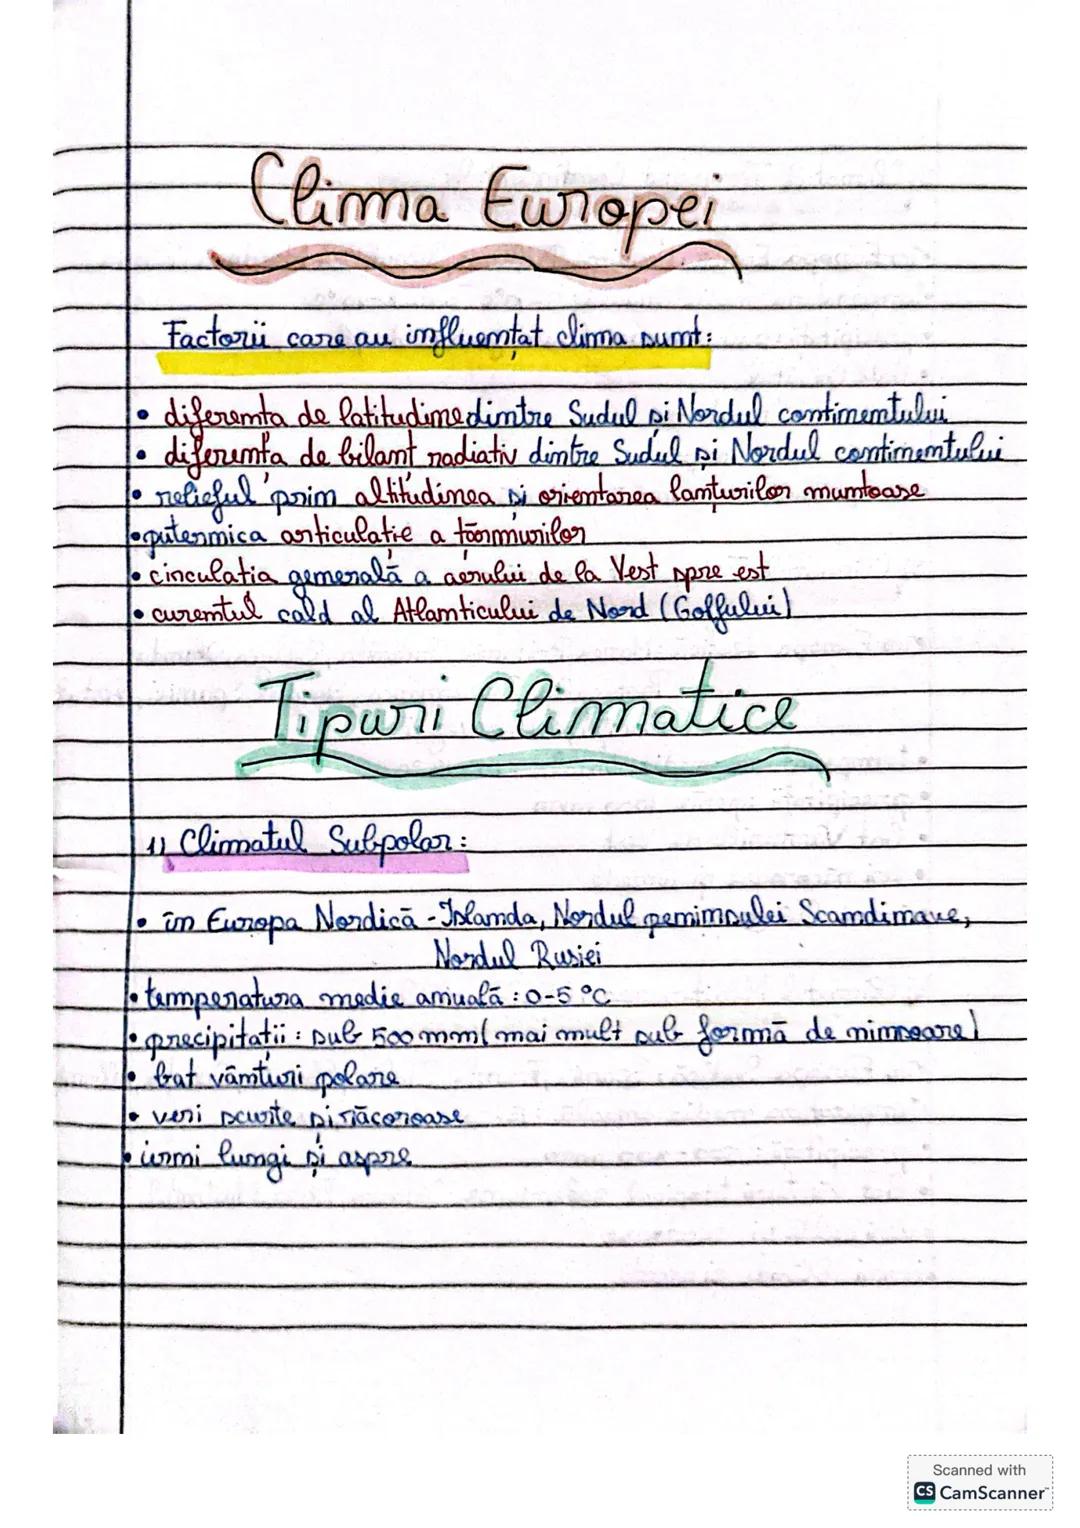 Clima Europei
Factorii care au influențat clima sunt:
• diferența de latitudine dintre Sudul și Nordul continentului
• diferența de bilanț radiativ dintre Sudul și Nordul continentului
• relieful prin altitudinea și orientarea lanțurilor muntoase
• puternica articulație a țărmurilor
• circulația generală a aerului de la Vest spre est
• curentul cald al Atlanticului de Nord (Golfului)
Tipuri Climatice
1) Climatul Subpolar:
• în Europa Nordică - Islanda, Nordul peninsulei Scandinave,
Nordul Rusiei
• temperatura medie anuală : 0-5 °C
• precipitații : sub 500 mm (mai mult sub formă de ninsoare)
• bat vânturi polare
• veri scurte și răcoroase
• ierni lungi și aspre
Scanned with
CS CamScanner